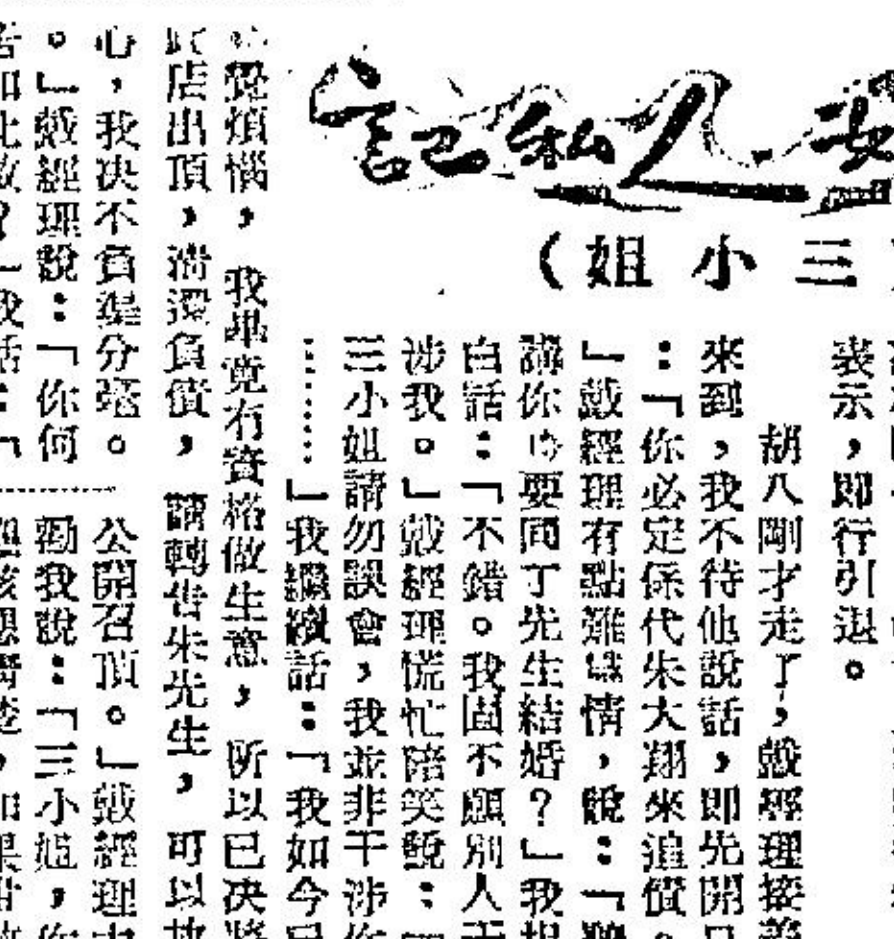 人私記
三小姐（
表示，即行引退。
胡八剛才走了，戲經理接
來到，我不待他說話，即先開口
：「你必定係代朱大翔來追債。
」戲經理有點難為情，說：「
講你要同丁先生結婚？」我
白話：「不錯。我固不願別人干
涉我。」戲經理慌忙陪笑說：「
三小姐請勿誤會，我並非干涉你
……」我繼續話：「我如今
覺煩惱，我畢竟冇資格做生意，所以已決將
店出頂，清還負債，請轉告朱先生，可以放
心，我决不負渠分毫。
公開召頂。」戲經理
。」戲經理說：「你何
勸我說：「三小姐，你